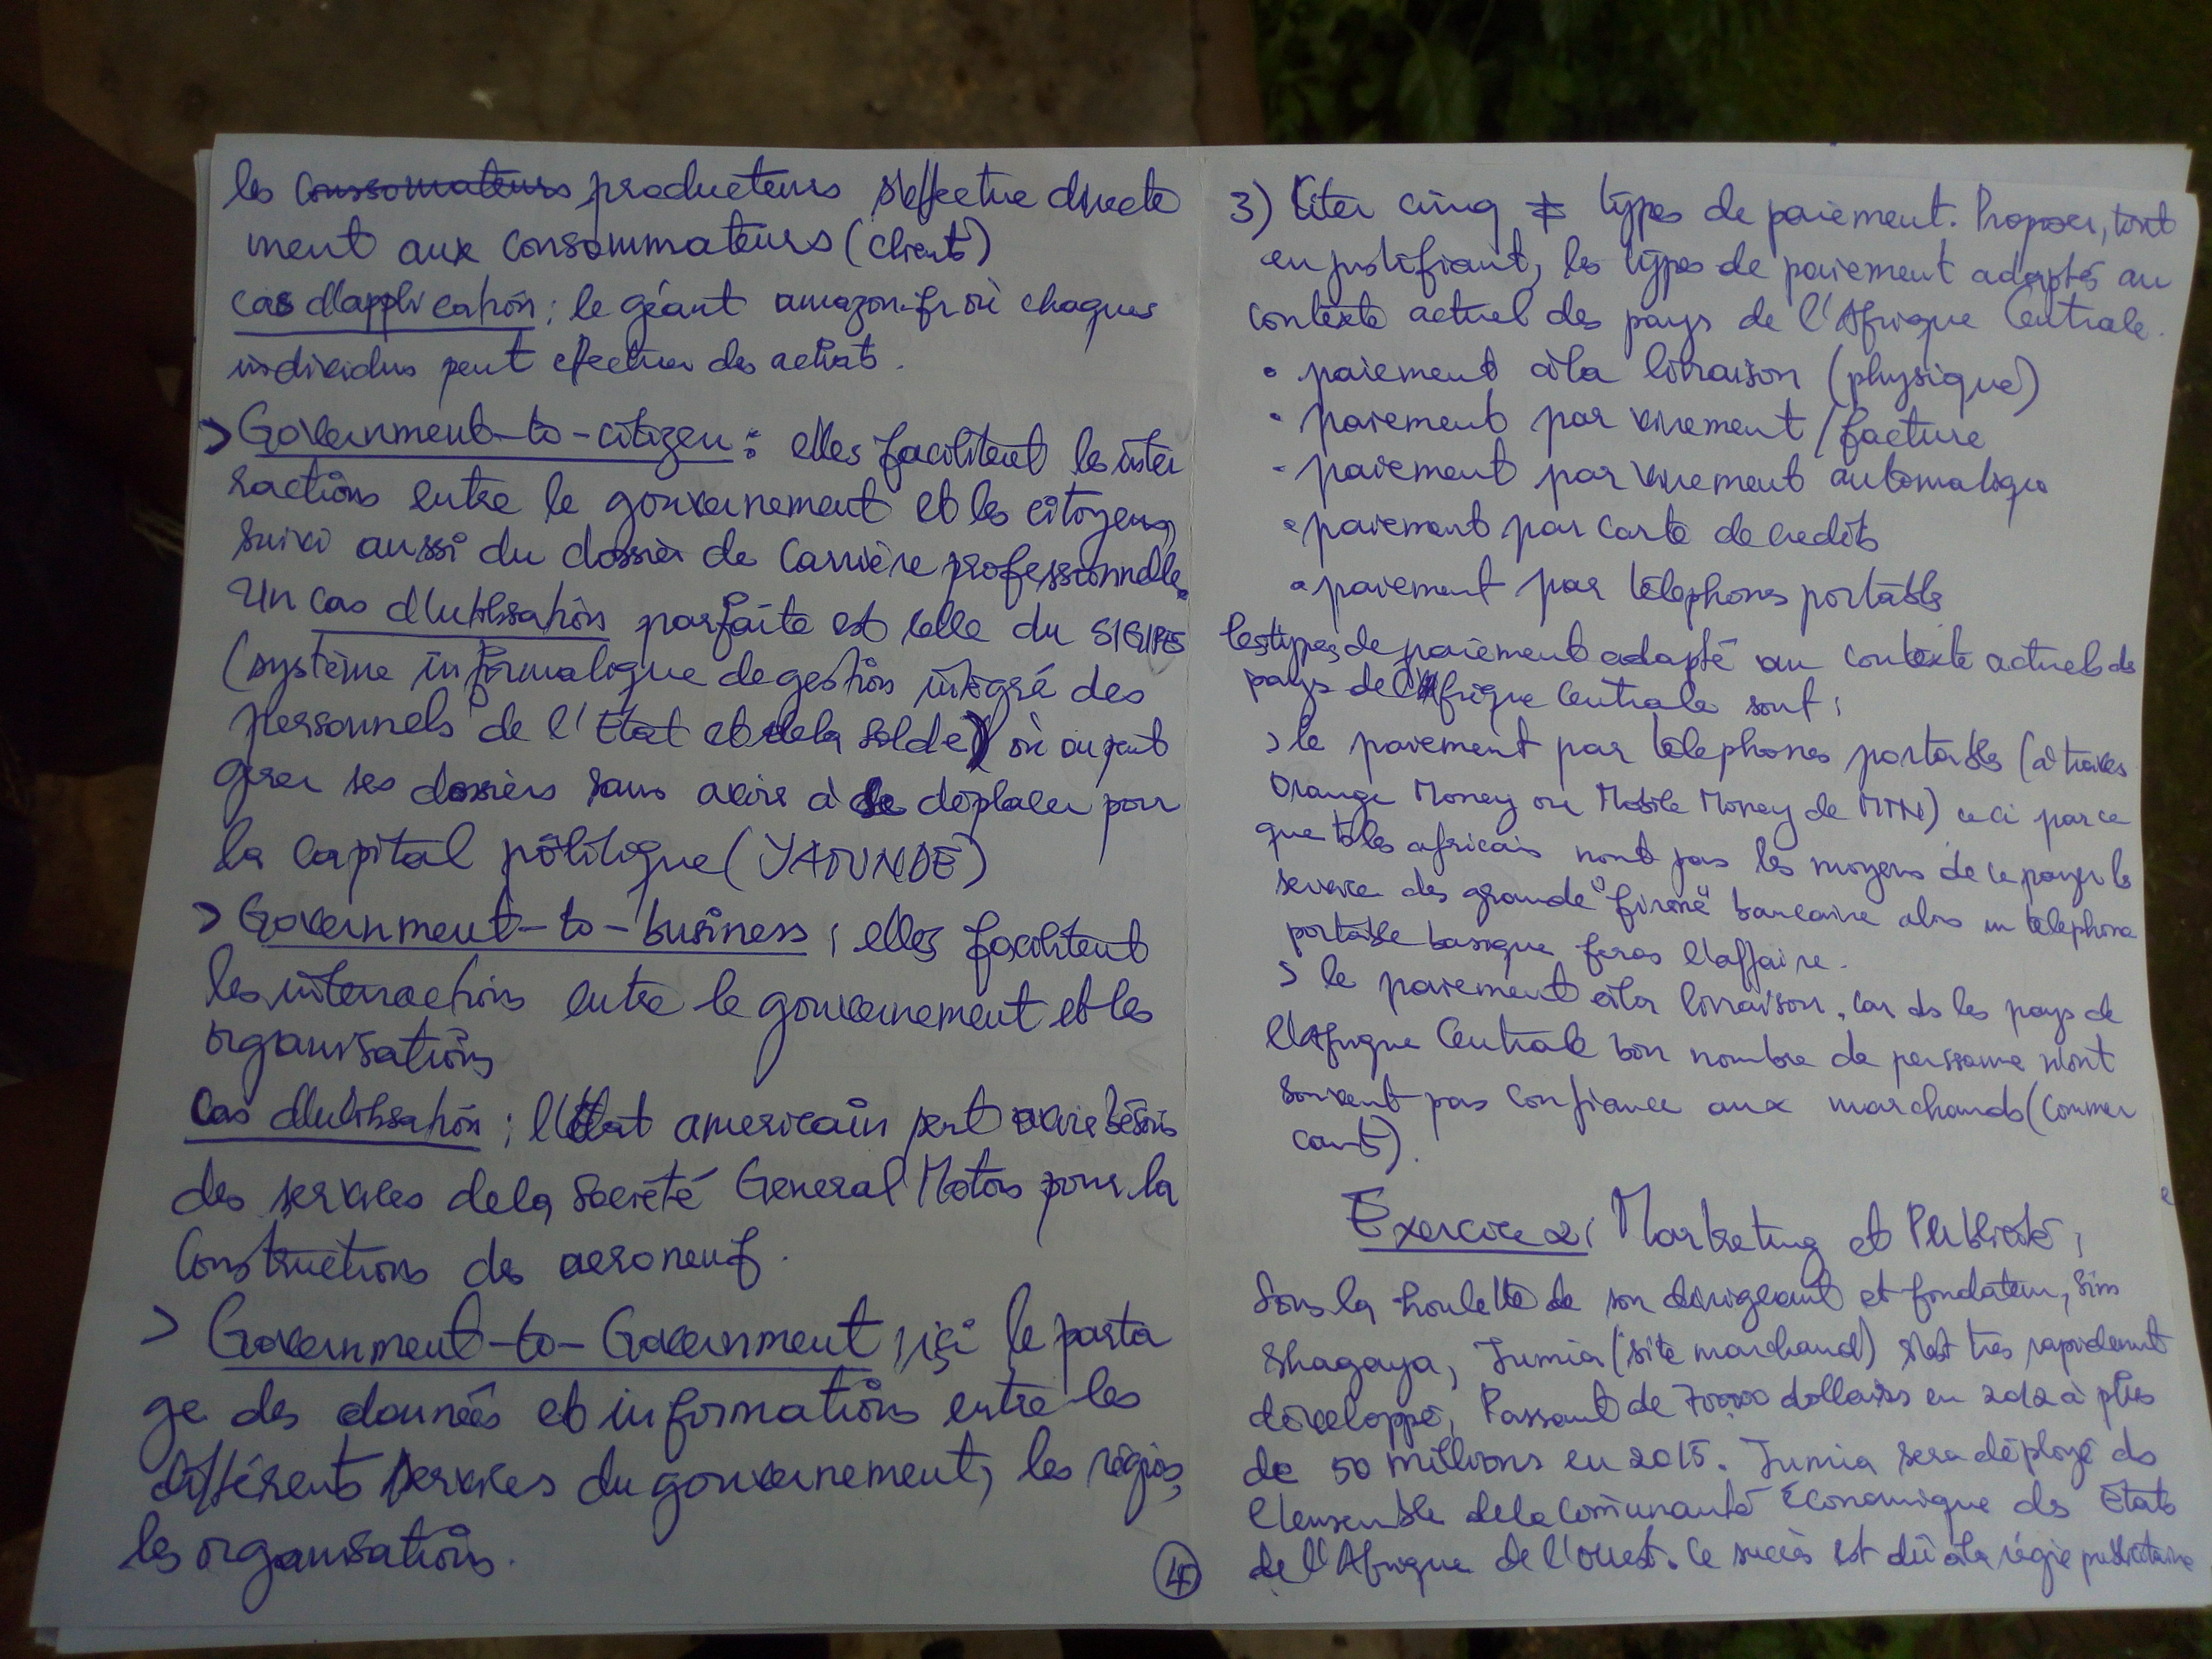 les consommateurs producteurs s'effectue directe
ment aux consommateurs (clients)
cas d'application : le géant amazon.fr où chaques
individus peut efectuer des achats.
> Government-to-citizen : elles facilitent les inter
ractions entre le gouvernement et les citoyens,
suivi aussi du dossier de carrière professionnelle.
Un cas d'utilisation parfaite est celle du SIGIPES
(système informatique de gestion intégré des
personnels de l'Etat et de la solde) où on peut
gerer ses dossiers sans avoir à se déplacer pour
la capital politique (YAOUNDE)
> Government-to-business ; elles facilitent
les interractions entre le gouvernement et les
organisations
Cas d'utilisation ; l'Etat americain peut avoir bésoin
des services de la Société General Motors pour la
constructions des aeronenf.
> Government-to-Government ; içi le parta
ge des données et informations entre les
différents services du gouvernement, les régions,
les organisations.
4
3) Citer cinq ≠ types de paiement. Proposer, tout
en justifiant, les types de paiement adaptés au
contexte actuel des pays de l'Afrique Centrale.
• paiement à la livraison (physique)
• paiement par virement / facture
• paiement par virement automatique
• paiement par carte de credits
• paiement par télephones portable
les types de paiement adapté au contexte actuel des
pays de l'Afrique Centrale sont :
> le paiement par télephones portable (à travers
Orange Money ou Mobile Money de MTN) ceci parce
que ts les africais n'ont pas les moyens de ce payer le
service des grande "firme" bancaire alors un telephone
portable basique feras l'affaire.
> le paiement à la livraison, car ds les pays de
l'Afrique Centrale bon nombre de perssonne n'ont
souvent pas confiance aux marchands (commer
cants).
Exercice 2 : Marketing et Publicité ;
Sous la houlette de son dirigeant et fondateur, Sim
Shagaya, Jumia (site marchand) s'est très rapidement
développé, Passant de 70000 dollaires en 2012 à plus
de 50 millions en 2015. Jumia sera déployé ds
l'ensemble de la Communauté Économique des États
de l'Afrique de l'ouest. Ce succès est dû à la régie publicitaire